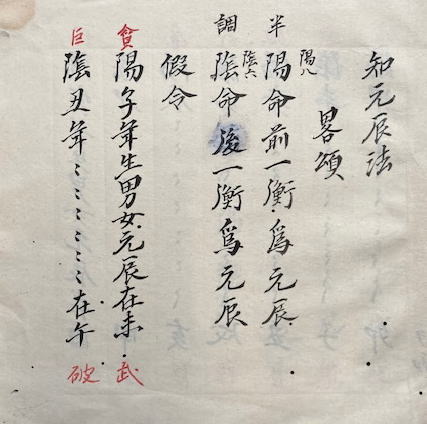 知元辰法
畧頌
陽八
半 陽命前一衝爲元辰
陰六
調 陰命後一衝爲元辰
假令
貪 陽子年生男女元辰在未 武
巨 陰丑年〻〻〻〻〻在午 破